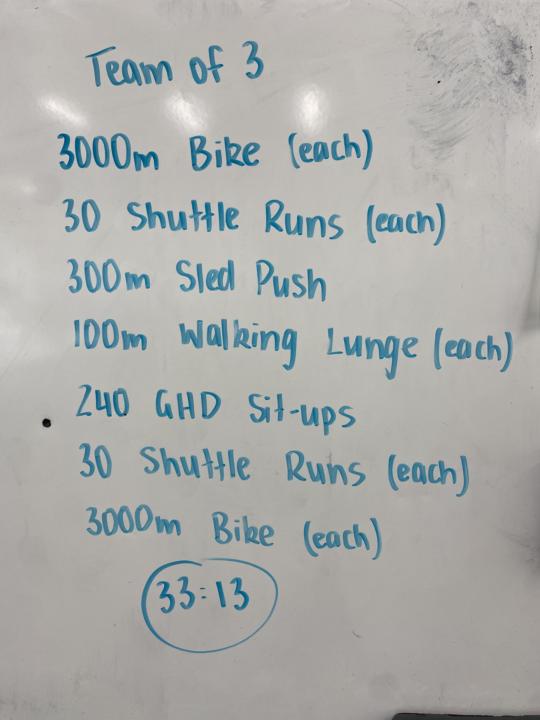 Team of 3
3000m Bike (each)
30 Shuttle Runs (each)
300m Sled Push
100m Walking Lunge (each)
240 GHD Sit-ups
30 Shuttle Runs (each)
3000m Bike (each)
33:13